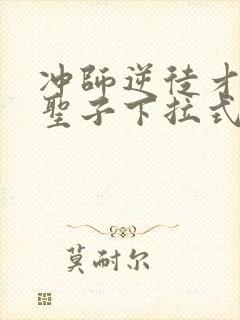 冲師逆徒才
聖子下拉式
莫耐尔